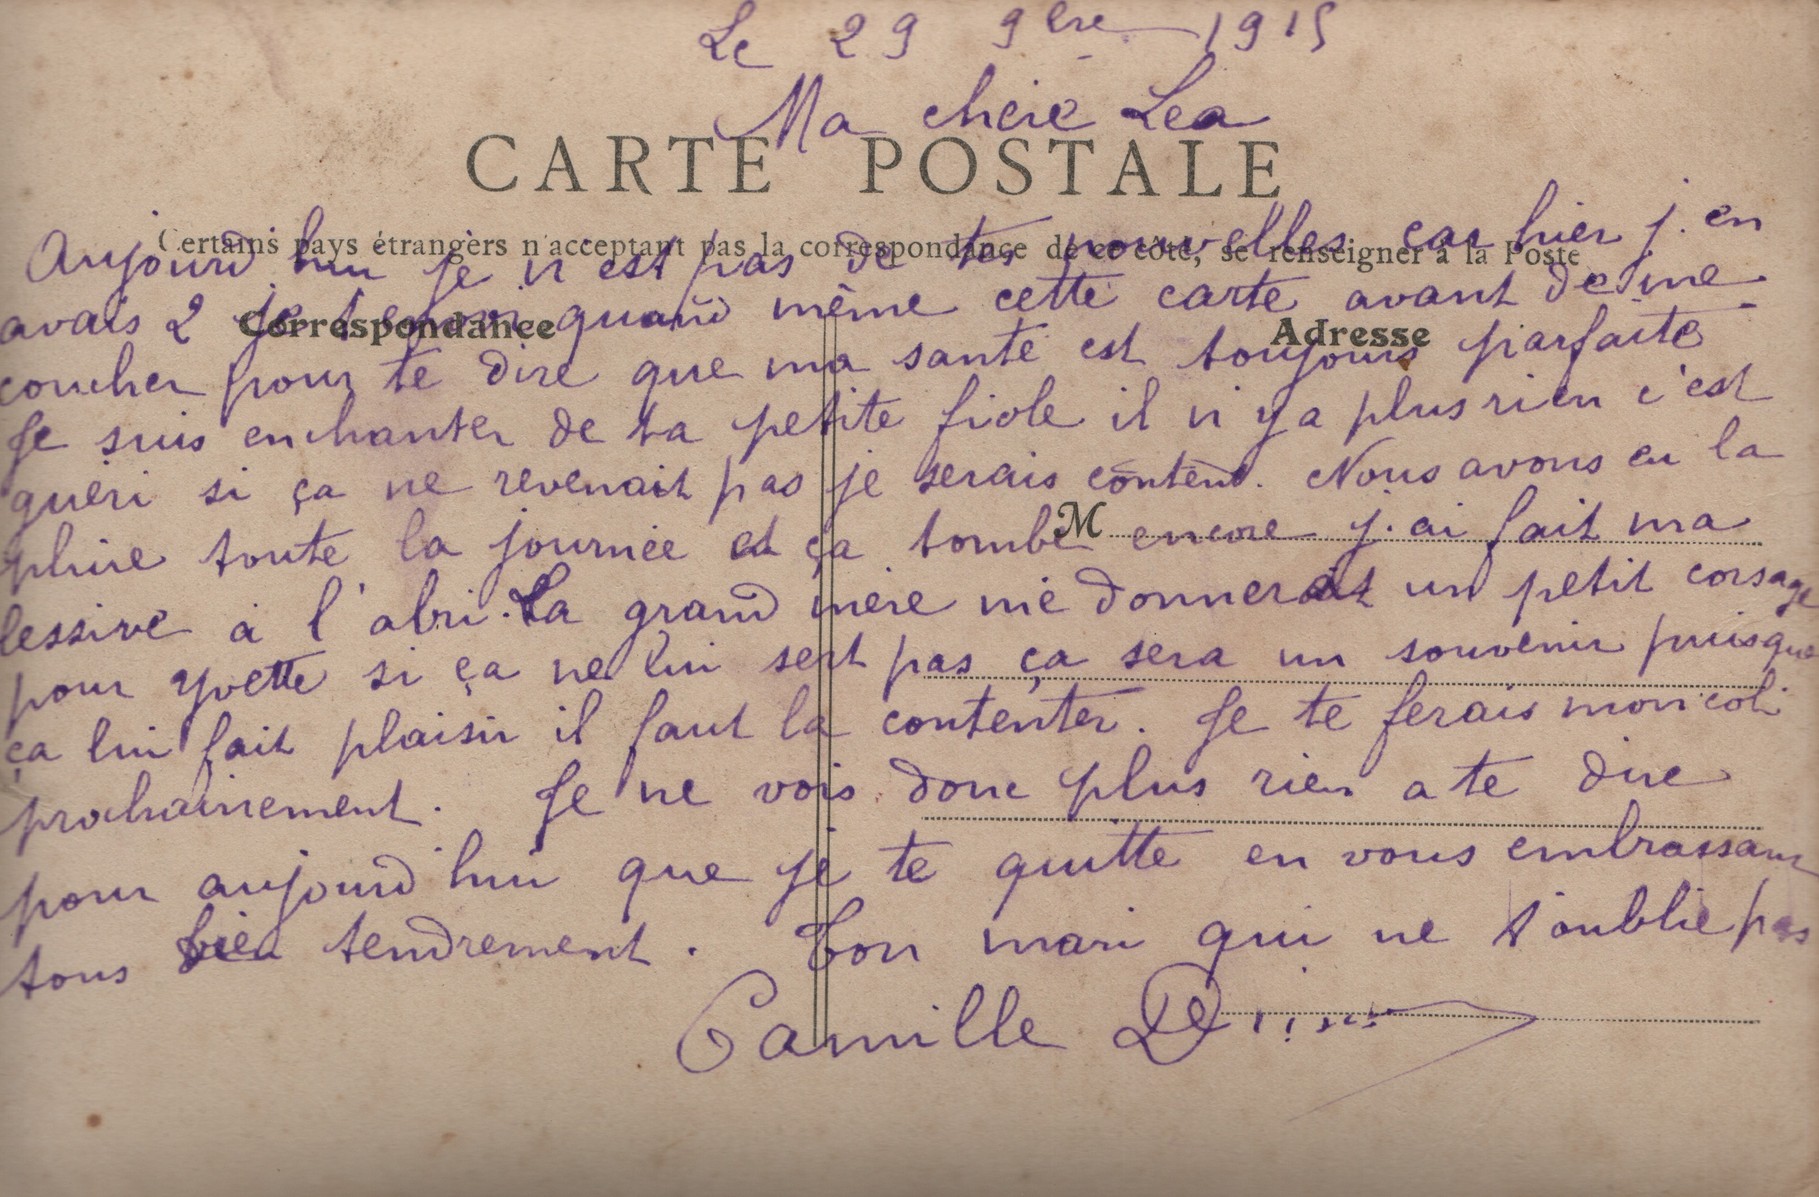 Le 29 9bre 1915
Ma chere Lea
CARTE POSTALE
Certains pays étrangers n'acceptant pas la correspondance de ce côté, se renseigner à la Poste
Aujourd hui je n est pas de tes nouvelles car hier j. en
avais 2 je t envoi quand même cette carte avant de me
Correspondance
Adresse
coucher pour te dire que ma santé est toujours parfaite
Je suis enchanter de ta petite fiole il n y a plus rien c'est
guèri si ça ne revenait pas je serais content. Nous avons eu la
M
pluie toute la journée et ça tombe encore j. ai fait ma
lessive a l'abri. La grand mère me donnerat un petit corsage
pour Yvette si ça ne lui sert pas ça sera un souvenir puisque
ça lui fait plaisir il faut la contenter. Je te ferais mon coli
prochainement. Je ne vois donc plus rien a te dire
pour aujourd'hui que je te quitte en vous embrassant
tous bien tendrement. Ton mari qui ne t'oublie pas
Camille